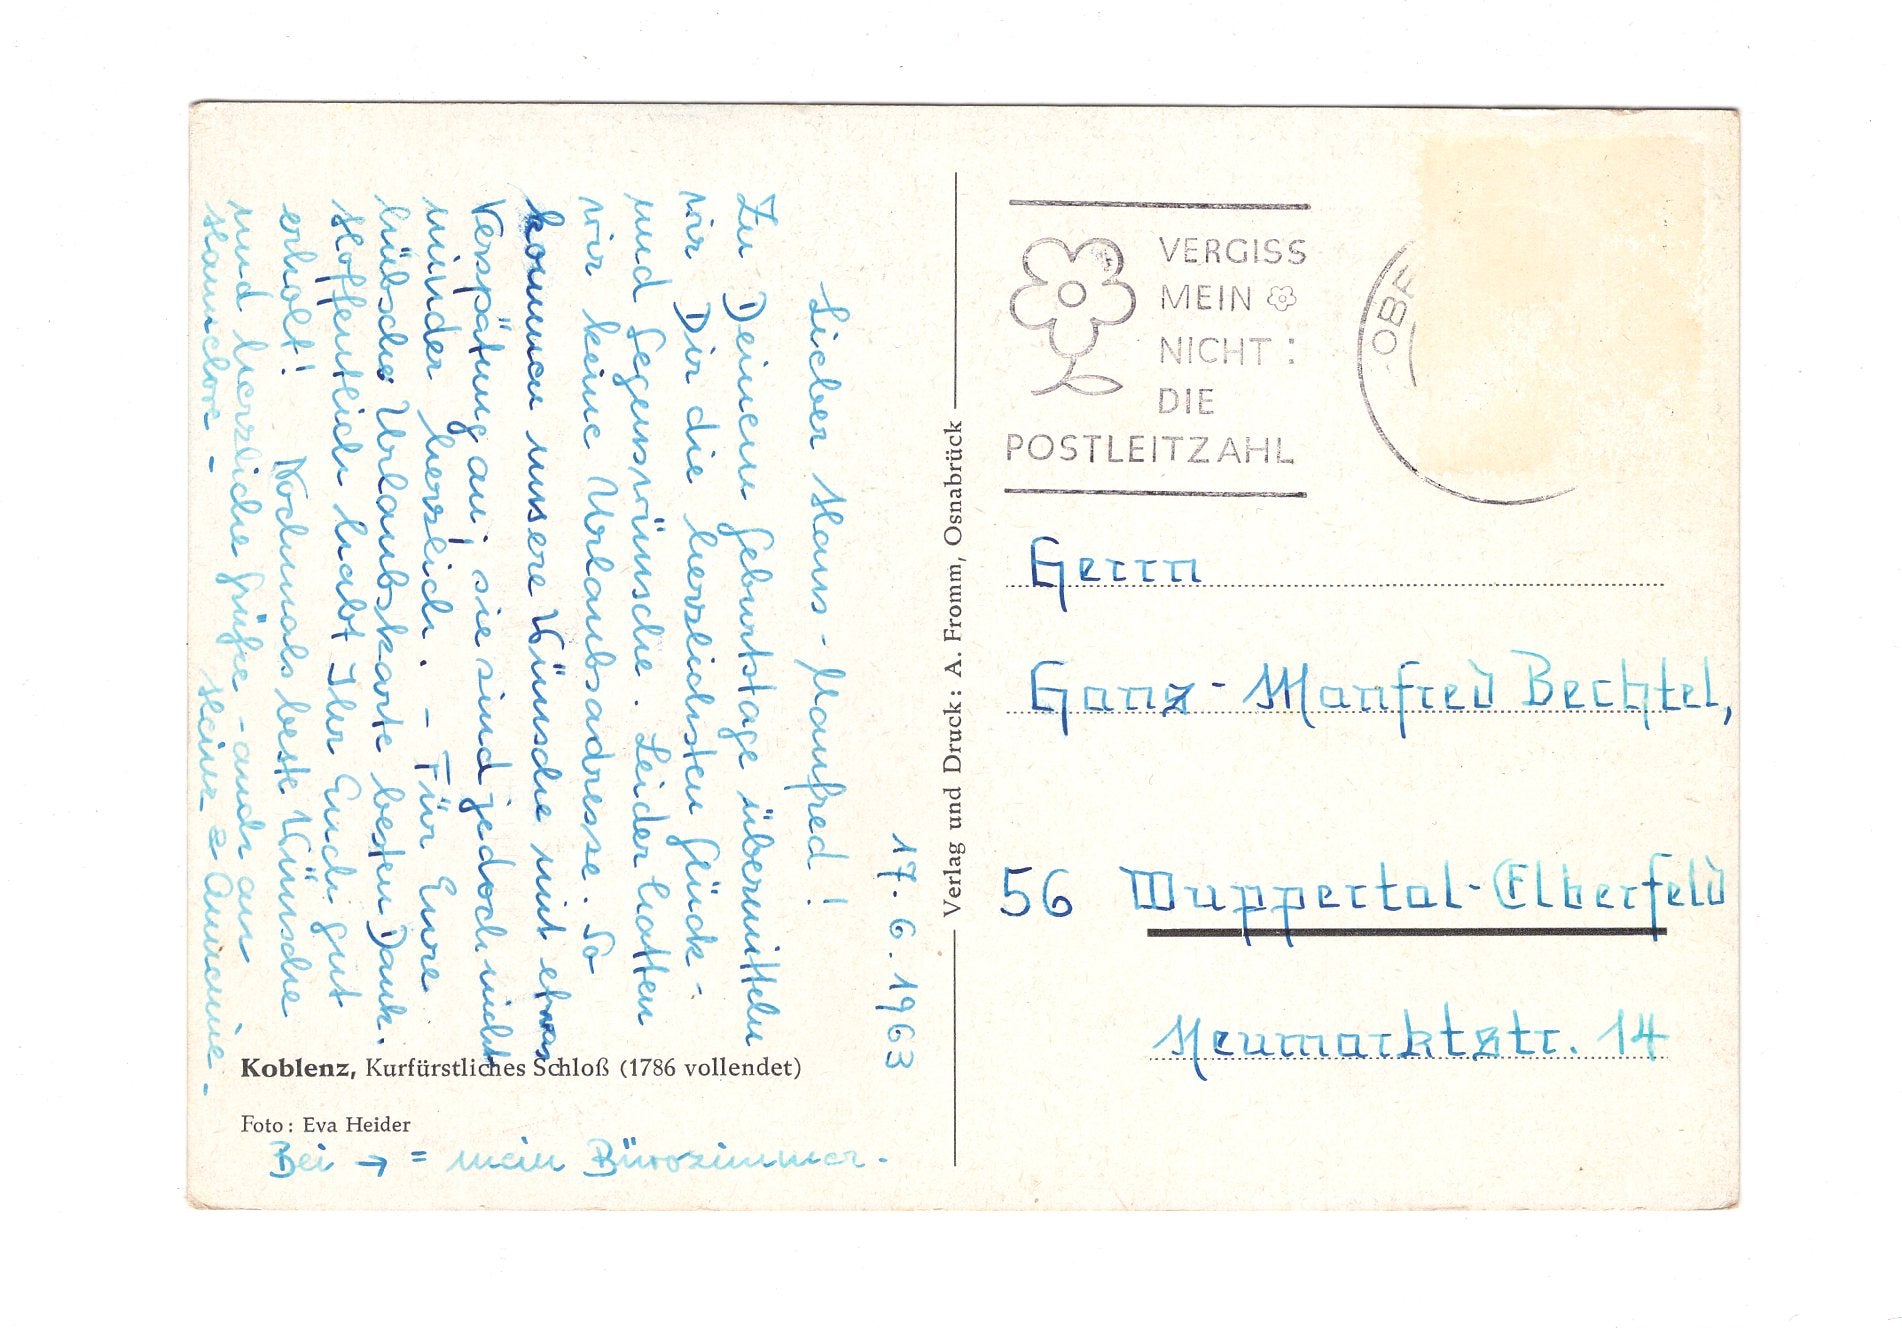 17. 6. 1963
Lieber Hans-Manfred!
Zu Deinem Geburtstage übermitteln
wir Dir die herzlichsten Glück-
und Segenswünsche. Leider hatten
wir keine Urlaubsadresse. So
kommen unsere Wünsche mit etwas
Verspätung an; sie sind jedoch nicht
minder herzlich. - Für Eure
hübsche Urlaubskarte besten Dank.
Hoffentlich habt Ihr Euch gut
erholt! Nochmals beste Wünsche
und herzliche Grüße - auch an
Hannelore - Heinz & Annemie.
Koblenz, Kurfürstliches Schloß (1786 vollendet)
Foto: Eva Heider
Bei → = mein Bürozimmer.
Verlag und Druck: A. Fromm, Osnabrück
VERGISS
MEIN
NICHT:
DIE
POSTLEITZAHL
Herrn
Hans-Manfred Bechtel,
56 Wuppertal-Elberfeld
Neumarktstr. 14